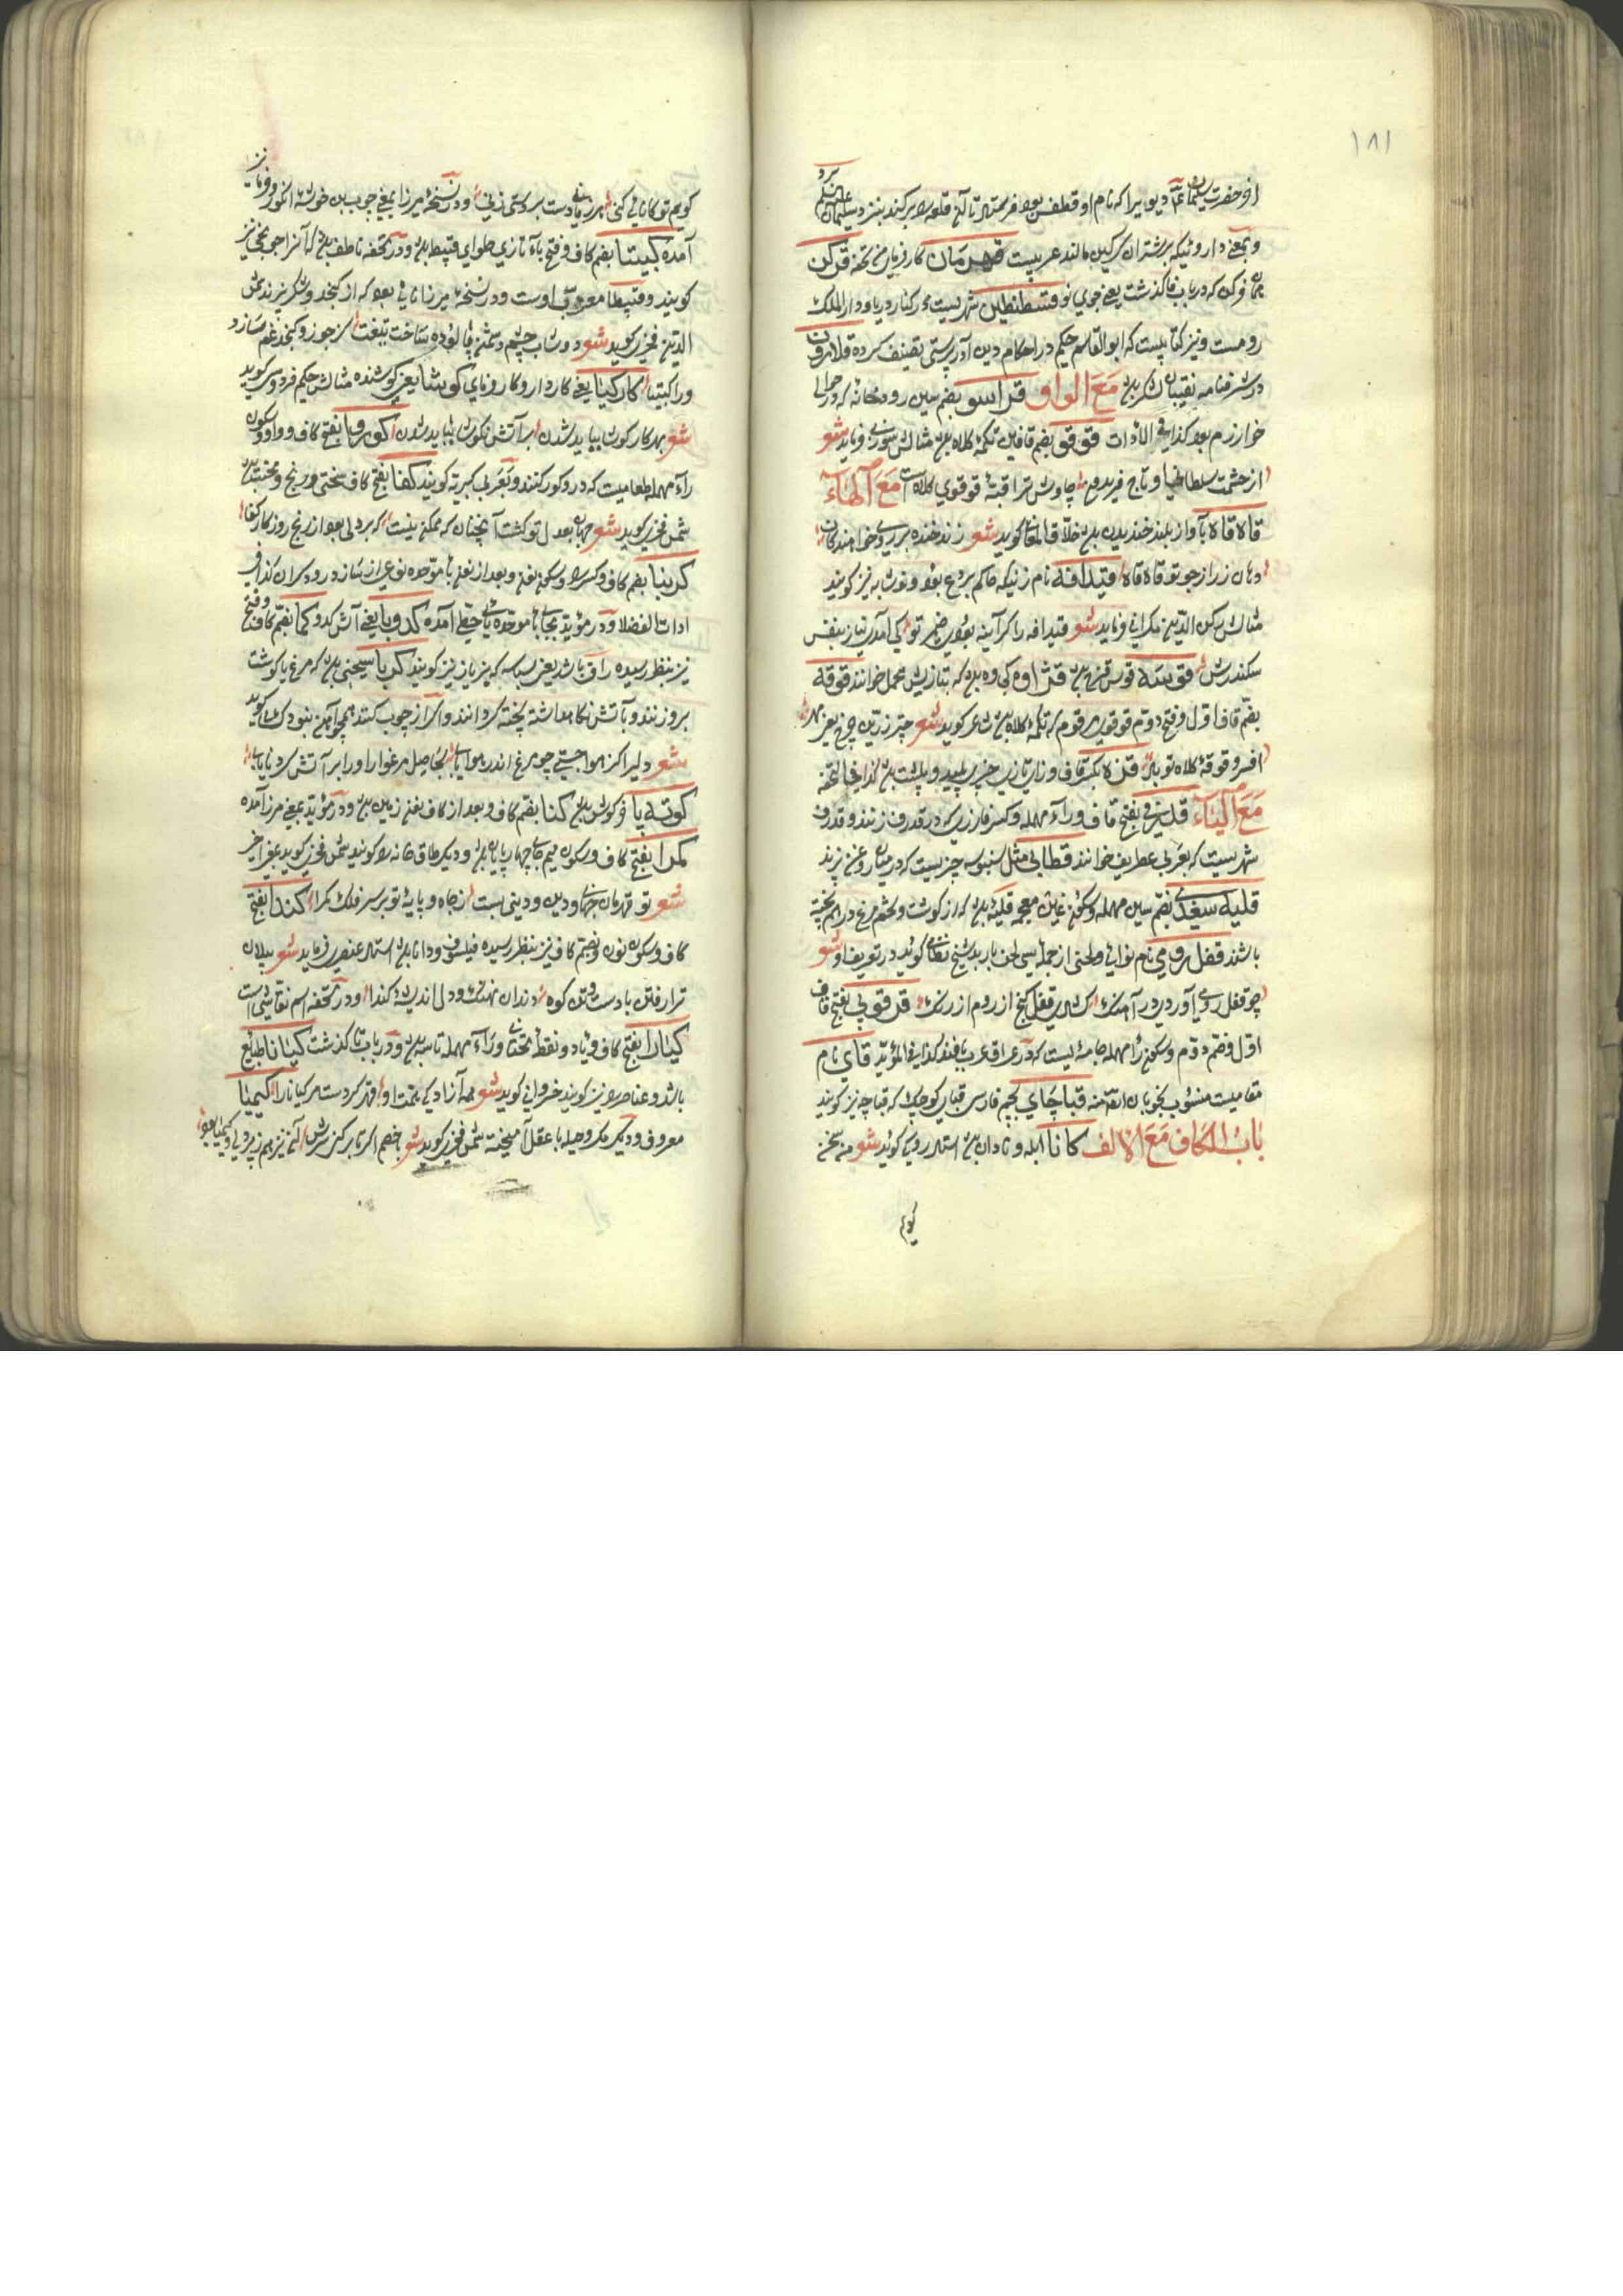 ١٨١
از حضرت سلیمان دیویرا که نام او قطفس بود فرستاد تا آن قلعه را برکند بنزد سلیمان علیه السلم برد
و بمعنی داروئیکه بر شتران کرکین مالند عربیست قهرمان کارفرمای تحفه قرکن
همان فرکن که در باب فا گذشت یعنی جوی نو قسطنطین شهریست بر کنار دریا و دار الملک
رومست و نیز کتابیست که ابو القاسم حکیم در احکام دین آذرپرستی تصنیف کرده قلاوون
در شرفنامه نقیبان لشکر بود مع الواو قراسو بضم سین رودخانه که در حوالی
خوارزم بود کذا فی الادات قوقو بضم قافین تکمه کلاه بود مثالش سوزنی فرماید شعر
از حشمت سلطانی و تاج فریدون چاوش ترا قبه قوقوی کلاه است مع الهاء
قاه قاه بآواز بلند خندیدن بود خلاق المعانی گوید شعر زند خنده بر روی خواهندگان
دهان زر از جود تو قاه قاه قیدافه نام زنیکه حاکم بردع بود و نوشابه نیز گویند
مثالش رکن الدین بکرانی فرماید شعر قیدافه را گر آینه بودی ضمیر تو کی آمدی نیاز بنقش
سکندرش قوسه قوس قزح بود قژاوه کجاوه بود که بتازیش محمل خوانند قوقه
بضم قاف اول و فتح دوم قوقوی مرقوم که تکمه کلاه بود شاعر گوید شعر چتر زرین چرخ یعنی مهر
افسر و قوقه کلاه تو باد قژه بکسر قاف و زای تازی چیز پلید و پلشت بود کذا فی التحفه
مع الیاء قلرزی بفتح قاف و راء مهمله و کسر فا زری که در قدرف زنند و قدرف
شهریست که بعربی غطریف خوانند قطابی مثل سنبوسه چیزیست که در میان روغن پزند
قلیه سغدی بضم سین مهمله و سکون غین معجمه قلیه بود که از گوشت و تخم مرغ در هم پخته
باشند قفل رومی نام نوائی و لحنی از جمله سی لحن باربد شیخ نظامی گوید در تعریف او شعر
چو قفل رومی آوردی در آهنگ گشادی قفل گنج از روم از زنگ قرقوبی بفتح قاف
اول و ضم دوم و سکون را مهمله جامه ایست که در عراق عرب بافند کذا فی المؤید قای نام
مقامیست منسوب بخوبان التحفه قباچای بجیم فارسی قبای کوچک که قباچه نیز گویند
باب الکاف مع الالف کانا ابله و نادان بود استاد رودکی گوید شعر من سخن
گویم
گویم تو کانائی کنی هر زمانی دست بر دستی زنی و در نسخه میرزا بمعنی چوب بن خوشه انگور و خرما نیز
آمده کبیتا بضم کاف و فتح باء تازی حلوای قبیط بود و در تحفه ناطف بود که آنرا جوزی نیز
گویند و قبیطا معرب اوست و در نسخه میرزا نانی بود که از کنجد و شکر پزند شمس
الدین فخری گوید شعر دوشاب چشم دشمن پالوده ساخت تیغت کز جوز و کنجد غم سازد
ورا کبیتا کارکیا یعنی کاردار و کارفرمای کوشا یعنی کوشنده مثالش حکیم فردوسی گوید
شعر بهر کار کوشا بباید شدن بر آتش نکوشا بباید شدن کوروا بفتح کاف و واو و سکون
راء مهمله طعامیست که در و کور کنند و بعربی کبریة گویند کفا بفتح کاف سختی و رنج و محنت بود
شمس فخری گوید شعر جهان بعدل تو گشت آنچنان که ممکن نیست که بر دلی بود از رنج روزگار کفا
کربنا بضم کاف و کسر را و سکون نون و بعد از نون با موحده نوعی از ساز و رود سران کذا فی
ادات الفضلا و در مؤید بجای با موحده یا حطی آمده کدوبا یعنی آش کدو کما بضم کاف و فتح
نیز بنظر رسیده راق باشد یعنی بسباسه که بزباز نیز گویند کردنا سیخی بود که مرغ یا گوشت
برو زنند و بآتش نگاه داشته پخته گردانند و اگر از چوب کنند همچو آهن بود دقیقی گوید
شعر دلیرا کز هوا جستی چو مرغ اندر هوا یابی بحاصل مرغوار او را بر آتش گردنا یابی
کوته پا خرگوش بود کنا بضم کاف و بعد از کاف نون زمین بود و در مؤید بمعنی مرز آمده
کمرا بفتح کاف و سکون میم جای چهارپایان بود و دیگر طاق خانه را گویند شمس فخری گوید بمعنی اخیر
شعر تو قهرمان جهانی و دین و دینی هست ز جاه و پایه تو بر سر فلک کمرا کندا بفتح
کاف و سکون نون و بضم کاف نیز بنظر رسیده فیلسوف و دانا بود استاد عنصری فرماید شعر بپیلان
ترا رفتن باد است و تن کوه دندان نهنگ و دل اندیشه کندا و در تحفه اسم نقاشی است
کیارا بفتح کاف و یاء دو نقطه تحتانی و راء مهمله تاسه بود و در باب تا گذشت کیانا طبایع
باشد و عناصر نیز گویند خسروانی گوید شعر همه آزادی همت او قهر کردست مر کیانا را کیمیا
معروف و دیگر مکر و حیله با عقل آمیخته شمس فخری گوید شعر خصم اگر تا بر کنز سرش آن نیز هم ز پردلی و کیمیا بود